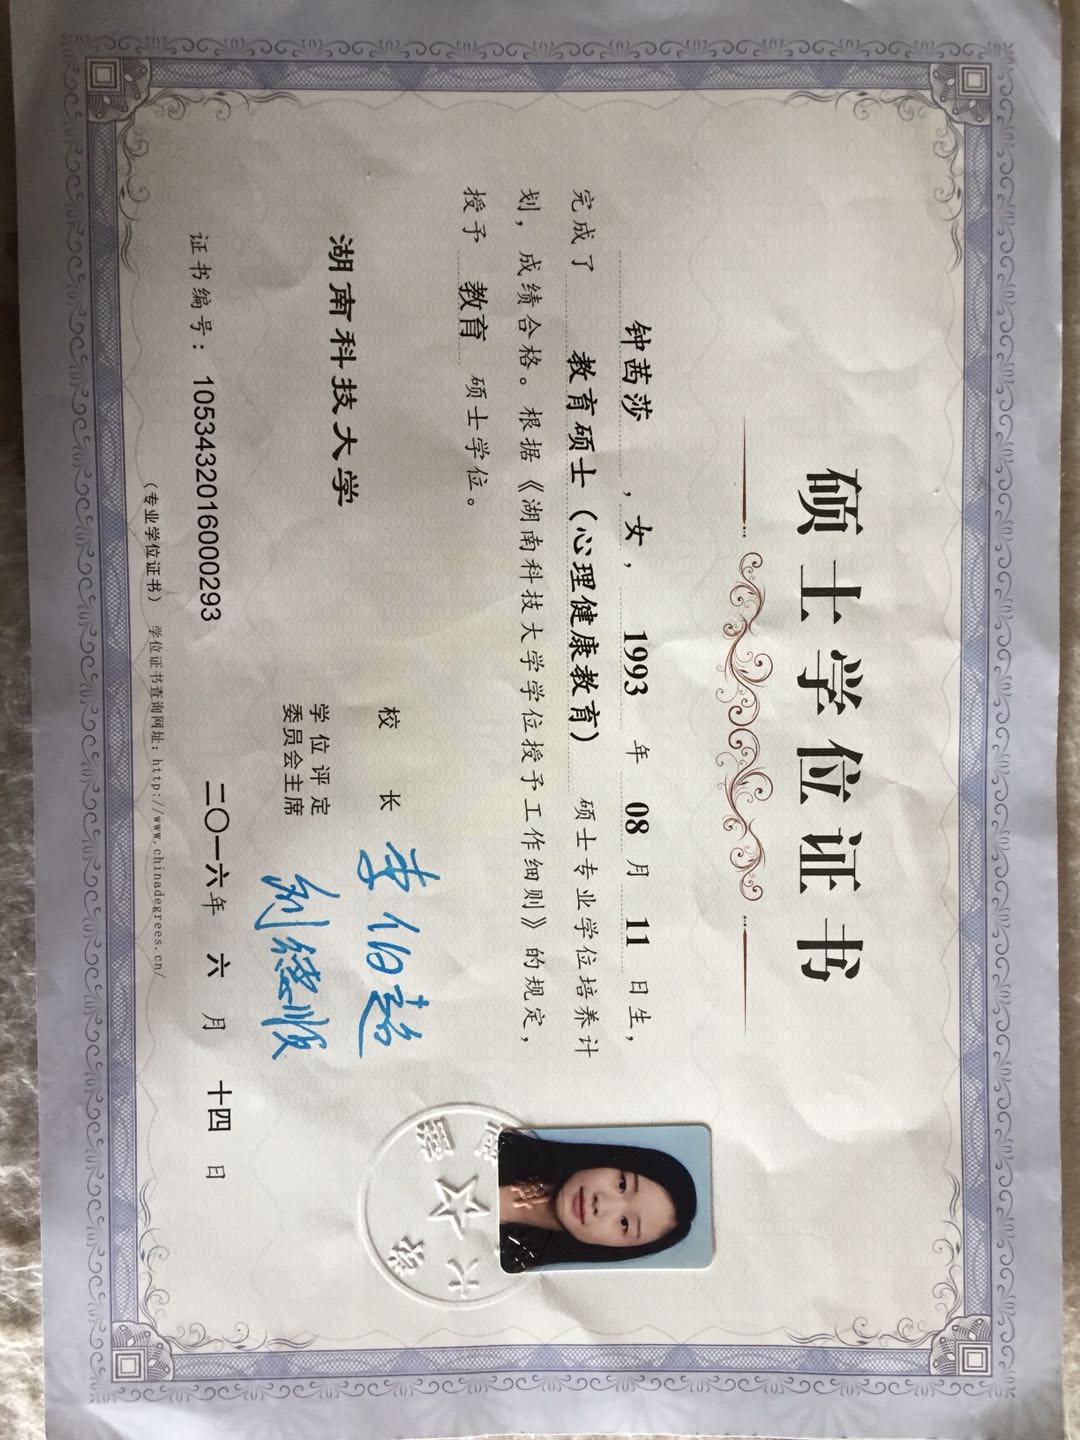 硕士学位证书
钟茜莎，女，1993年08月11日生，
完成了 教育硕士（心理健康教育） 硕士专业学位培养计
划，成绩合格。根据《湖南科技大学学位授予工作细则》的规定，
授予 教育 硕士学位。
湖南科技大学
校长 李伯超
学位评定
委员会主席 刘德顺
证书编号：1053432016000293
二〇一六年 六 月 十四 日
（专业学位证书） 学位证书查询网址：http://www.chinadegrees.cn/